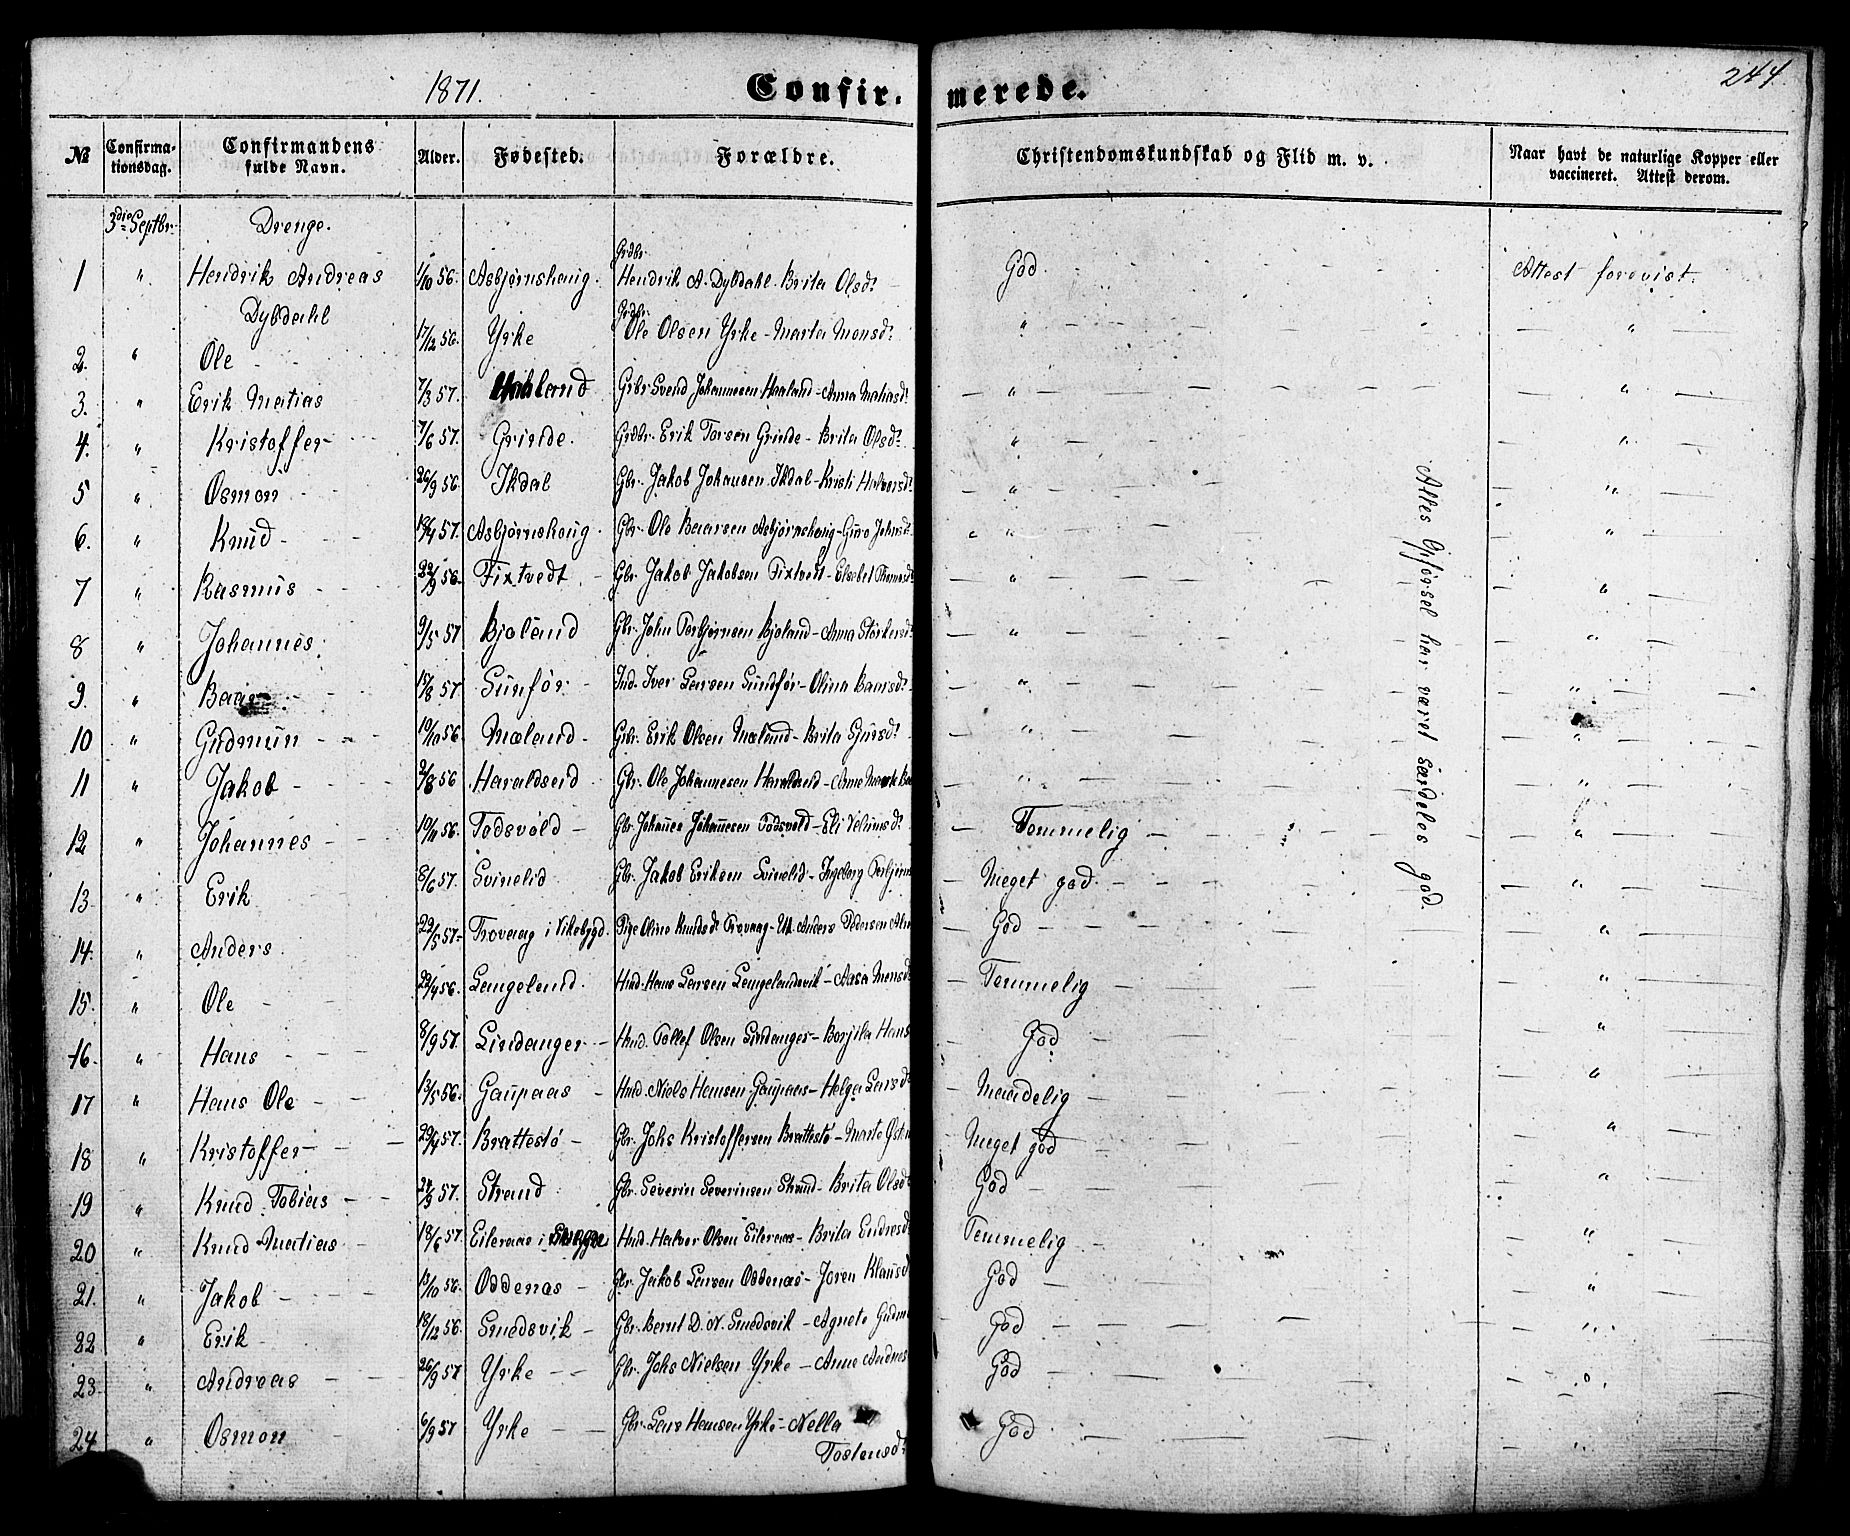 1871. Confir- merede. 244
№ Confirma-tionsdag. Confirmandens fulde Navn. Alder. Fødested. Forældre. Christendomskundskab og Flid m. v. Naar havt de naturlige Kopper eller vaccineret. Attest derom.
3die Septbr. Drenge.
1 " Hendrik Andreas Dybdahl 1/10 56. Asbjørnshaug. Grdbr. Hendrik A. Dybdahl - Brita Olsdr God. Attest forevist.
2. " Ole - 17/12 56. Yrke Grdbr. Ole Olsen Yrke - Marta Monsdr " "
3. " Erik Matias 7/3 57. Haaland Grbr Svend Johannesen Haaland - Anna Matiasdr " "
4. " Kristoffer 7/6 57. Grinde. Grdbr. Erik Torsen Grinde - Brita Olsdr " "
5 " Osmon 26/9 56 Ikdal Gbr. Jakob Johansen Ikdal - Kristi Halvorsdr " "
6. " Knud 13/4 57. Asbjørnshaug. Gbr. Ole Baarsen Asbjørnshaug - Guro Johnsdr " "
7 " Rasmus 22/9 56. Fixtvedt Gbr. Jakob Jakobsen Fixtvedt - Elsebet Thomasdr " "
8 " Johannes. 9/5 57 Bjoland Gbr. John Torbjørnsen Bjoland - Anna Størkersdr " "
9. " Baar 15/8 57. Sunfør Ind. Iver Larsen Sundfør - Olina Baarsdr " "
10 " Gudmun 19/10 56 Mæland Grbr. Erik Olsen Mæland - Brita Sjursdr " "
11 " Jakob 2/8 56 Haraldseid Gbr. Ole Johannesen Haraldseid - Anne Marte " "
12 " Johannes 19/11 56. Todsvold Gbr. Johannes Johannesen Todsvold - Eli Temmelig "
13 " Erik 8/6 57. Svinelid Gbr. Jakob Eriksen Svinelid - Ingeborg Meget god. "
14. " Anders. 22/5 57 Trovaag i Vikebygd. Pige Oline Knudsdr Trovaag - UK. Anders Pedersen God "
15. " Ole 22/4 56. Langeland. Hmd. Hans Larsen Langelandsvik - Aasa Monsd Temmelig "
16. " Hans 8/9 57. Lindanger Hmd. Tollef Olsen Lindanger - Borjila Hans God "
17 " Hans Ole 13/5 56. Gaupaas Hmd. Niels Hansen Gaupaas - Helga Larsd Maadelig "
18 " Kristoffer 29/4 57. Brattestø Gbr. Johs Kristoffersen Brattestø - Marte Meget god "
19 " Knud Tobias 24/9 57. Strand Gbr. Severin Severinsen Strand - Brita Olsd God "
20 " Knud Matias 18/6 57 Eileraas i Hmd. Halvor Olsen Eileraas - Brita Endresd Temmelig "
21. " Jakob 13/10 56. Oddenæs Gbr. Jakob Larsen Oddenæs - Joren Klausd God "
22 " Erik 18/12 56. Smedsvik Gbr. Bernt D. N. Smedsvik - Agnete Gudm God "
23. " Andreas 26/9 57 Yrke Gbr. Johs Nielsen Yrke - Anne God "
24 " Osmon 6/9 57 Yrke Gbr. Lars Hansen Yrke - Nella Tostensdr God "
Alles Opførsel har været særdeles god.